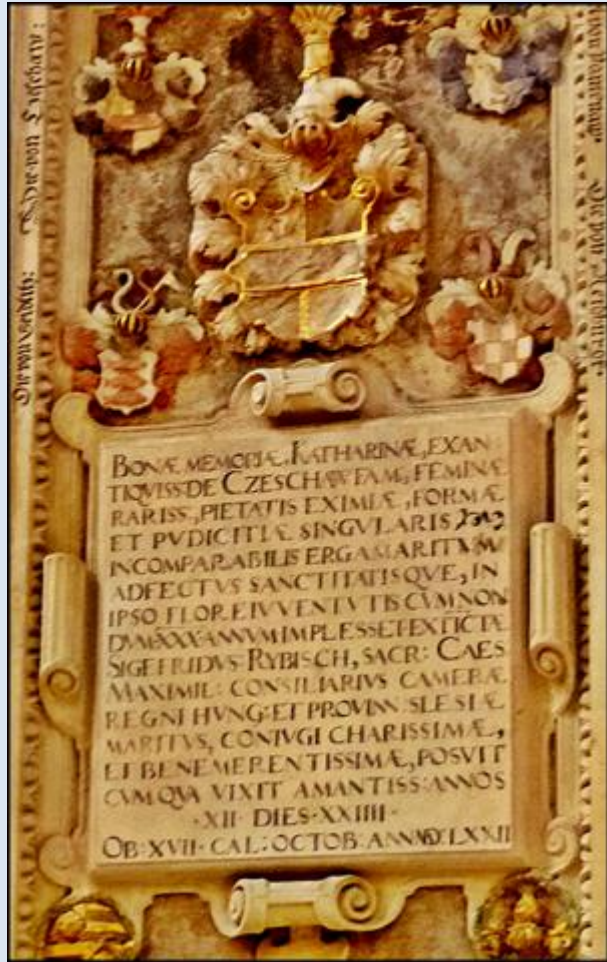 Die von
BONÆ MEMORIÆ, KATHARINÆ, EX AN
TIQVISS: DE CZESCHAW FAM: FEMINÆ
RARISS., PIETATIS EXIMIÆ, FORMÆ
ET PVDICITIÆ SINGVLARIS,
INCOMPARABILIS ERGA MARITVM
ADFECTVS SANCTITATISQVE, IN
IPSO FLORE IVVENTVTIS CVM NON
DVM XXX ANNVM IMPLESSET EXTICTÆ
SIGEFRIDVS RYBISCH, SACR: CAES
MAXIMIL: CONSILIARIVS CAMERÆ
REGNI HVNG: ET PROVINN SLESIÆ
MARITVS, CONIVGI CHARISSIMÆ,
ET BENEMERENTISSIMÆ, POSVIT
CVM QVA VIXIT AMANTISS: ANNOS
·XII· DIES·XXIIII·
OB: XVII· CAL: OCTOB: ANN MD: LXXII